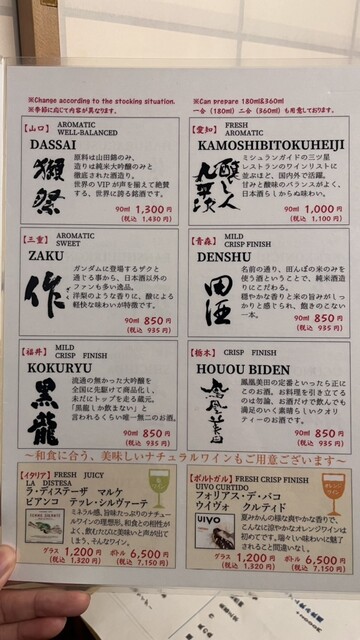 ※Change according to the stocking situation.
※季節に応じて内容が異なります。
※Can prepare 180ml&360ml
一合（180ml）二合（360ml）も用意しております。
【山口】 AROMATIC
WELL-BALANCED
DASSAI
獺祭
原料は山田錦のみ、
造りは純米大吟醸のみと
徹底された酒造り。
世界のVIPが声を揃えて絶賛
する、世界に誇る銘酒です。
90ml 1,300円
(税込 1,430円)
【愛知】 FRESH
AROMATIC
KAMOSHIBITOKUHEIJI
醸し人九平次
ミシュランガイドの三ツ星
レストランのワインリストに
並ぶほど、国内外で活躍。
甘みと酸味のバランスがよく、
日本酒らしからぬ味わい。
90ml 1,000円
(税込 1,100円)
【三重】 AROMATIC
SWEET
ZAKU
作
ざく
ガンダムに登場するザクと
通じる事から、日本酒以外の
ファンも多い逸品。
洋梨のような香りに、酸による
軽快な味わいが特徴です。
90ml 850円
(税込 935円)
【青森】 MILD
CRISP FINISH
DENSHU
田酒
名前の通り、田んぼの米のみを
使う酒ということで、純米酒造
りにこだわる。
穏やかな香りと米の旨みがしっ
かりと感じられ、飽きのこない
一本。
90ml 850円
(税込 935円)
【福井】 MILD
CRISP FINISH
KOKURYU
黒龍
流通の無かった大吟醸を
全国に先駆けて商品化し、
未だにトップを走る蔵元。
「黒龍しか飲まない」と
言われるくらい唯一無二のお酒。
90ml 850円
(税込 935円)
【栃木】 CRISP FINISH
HOUOU BIDEN
鳳凰美田
鳳凰美田の定番といったら正に
このお酒。お料理を引き立てる
のは勿論、お酒だけで飲んでも
満足のいく素晴らしいクオリ
ティーのお酒です。
90ml 850円
(税込 935円)
～和食に合う、美味しいナチュラルワインもご用意ございます～
【イタリア】FRESH JUICY
LA DISTESA
ラ・ディステーザ マルケ
ビアンコ テッレ・シルヴァーテ
ミネラル感、旨味たっぷりのナチュー
ルワインの理想形。和食との相性が
よく、飲むたびに美味いと声が出て
しまう、そんなワイン。
グラス 1,200円 ボトル 6,500円
(税込 1,320円) (税込 7,150円)
【ポルトガル】FRESH CRISP FINISH
UIVO CURTIDO
フォリアス・デ・バコ
ウイヴォ クルティド
オレンジ
ワイン
UIVO
夏みかんの様な爽やかな香りで、
こんなに涼やかなオレンジワインは
初めてです。瑞々しい味わいに魅了
されること間違いなし。
グラス 1,200円 ボトル 6,500円
(税込 1,320円) (税込 7,150円)